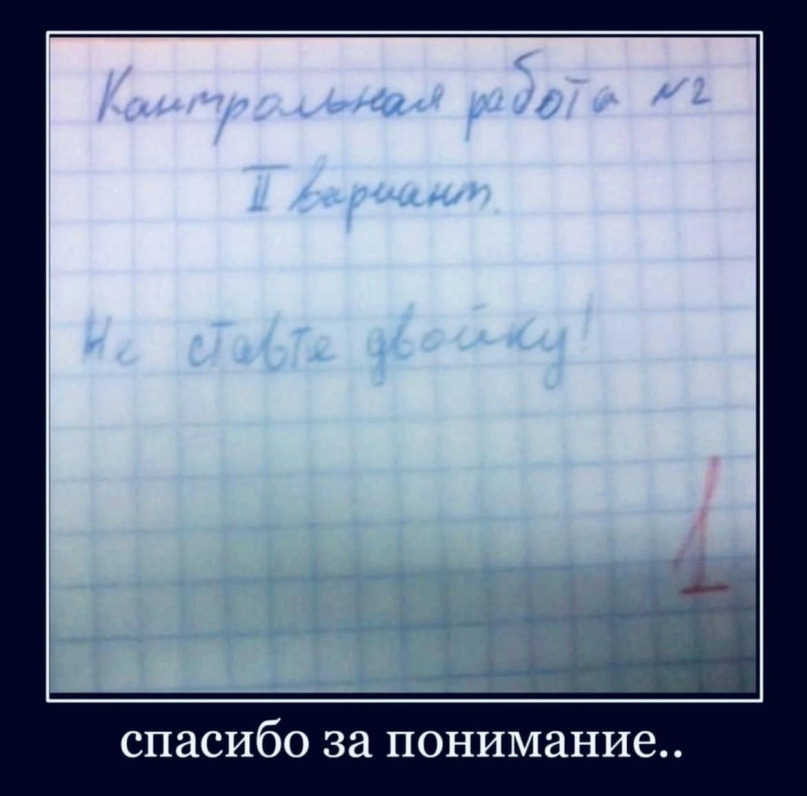 Кантрольная работа №2
II вариант.
Не ставте двойку!
1
спасибо за понимание..